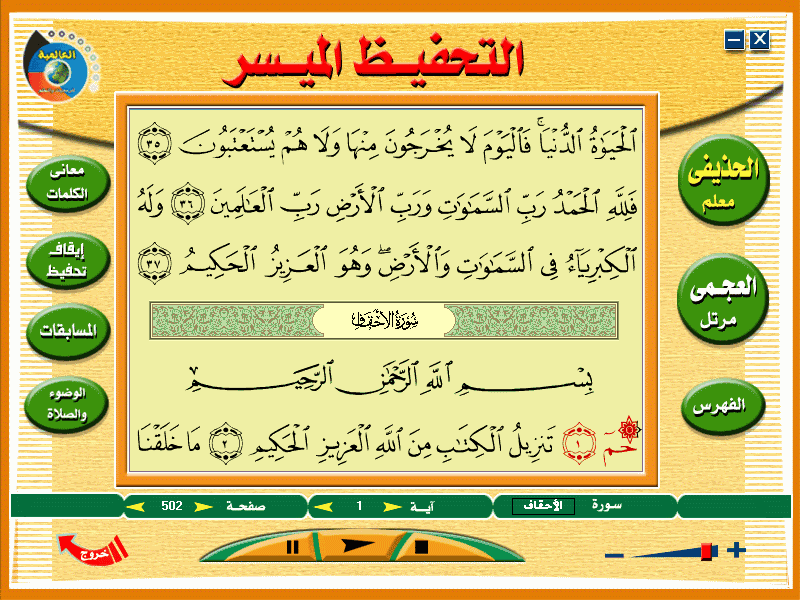 العالمية
التحفيظ الميسر
ٱلْحَيَوٰةُ ٱلدُّنْيَا ۚ فَٱلْيَوْمَ لَا يُخْرَجُونَ مِنْهَا وَلَا هُمْ يُسْتَعْتَبُونَ ٣٥
فَلِلَّهِ ٱلْحَمْدُ رَبِّ ٱلسَّمَٰوَٰتِ وَرَبِّ ٱلْأَرْضِ رَبِّ ٱلْعَٰلَمِينَ ٣٦ وَلَهُ
ٱلْكِبْرِيَآءُ فِى ٱلسَّمَٰوَٰتِ وَٱلْأَرْضِ ۖ وَهُوَ ٱلْعَزِيزُ ٱلْحَكِيمُ ٣٧
سُورَةُ الْأَحْقَافِ
بِسْمِ ٱللَّهِ ٱلرَّحْمَٰنِ ٱلرَّحِيمِ
حمٓ ١ تَنزِيلُ ٱلْكِتَٰبِ مِنَ ٱللَّهِ ٱلْعَزِيزِ ٱلْحَكِيمِ ٢ مَا خَلَقْنَا
الحذيفى
معلم
العجمى
مرتل
الفهرس
معانى
الكلمات
إيقاف
تحفيظ
المسابقات
الوضوء
والصلاة
سورة الأحقاف
آية 1
صفحة 502
خروج